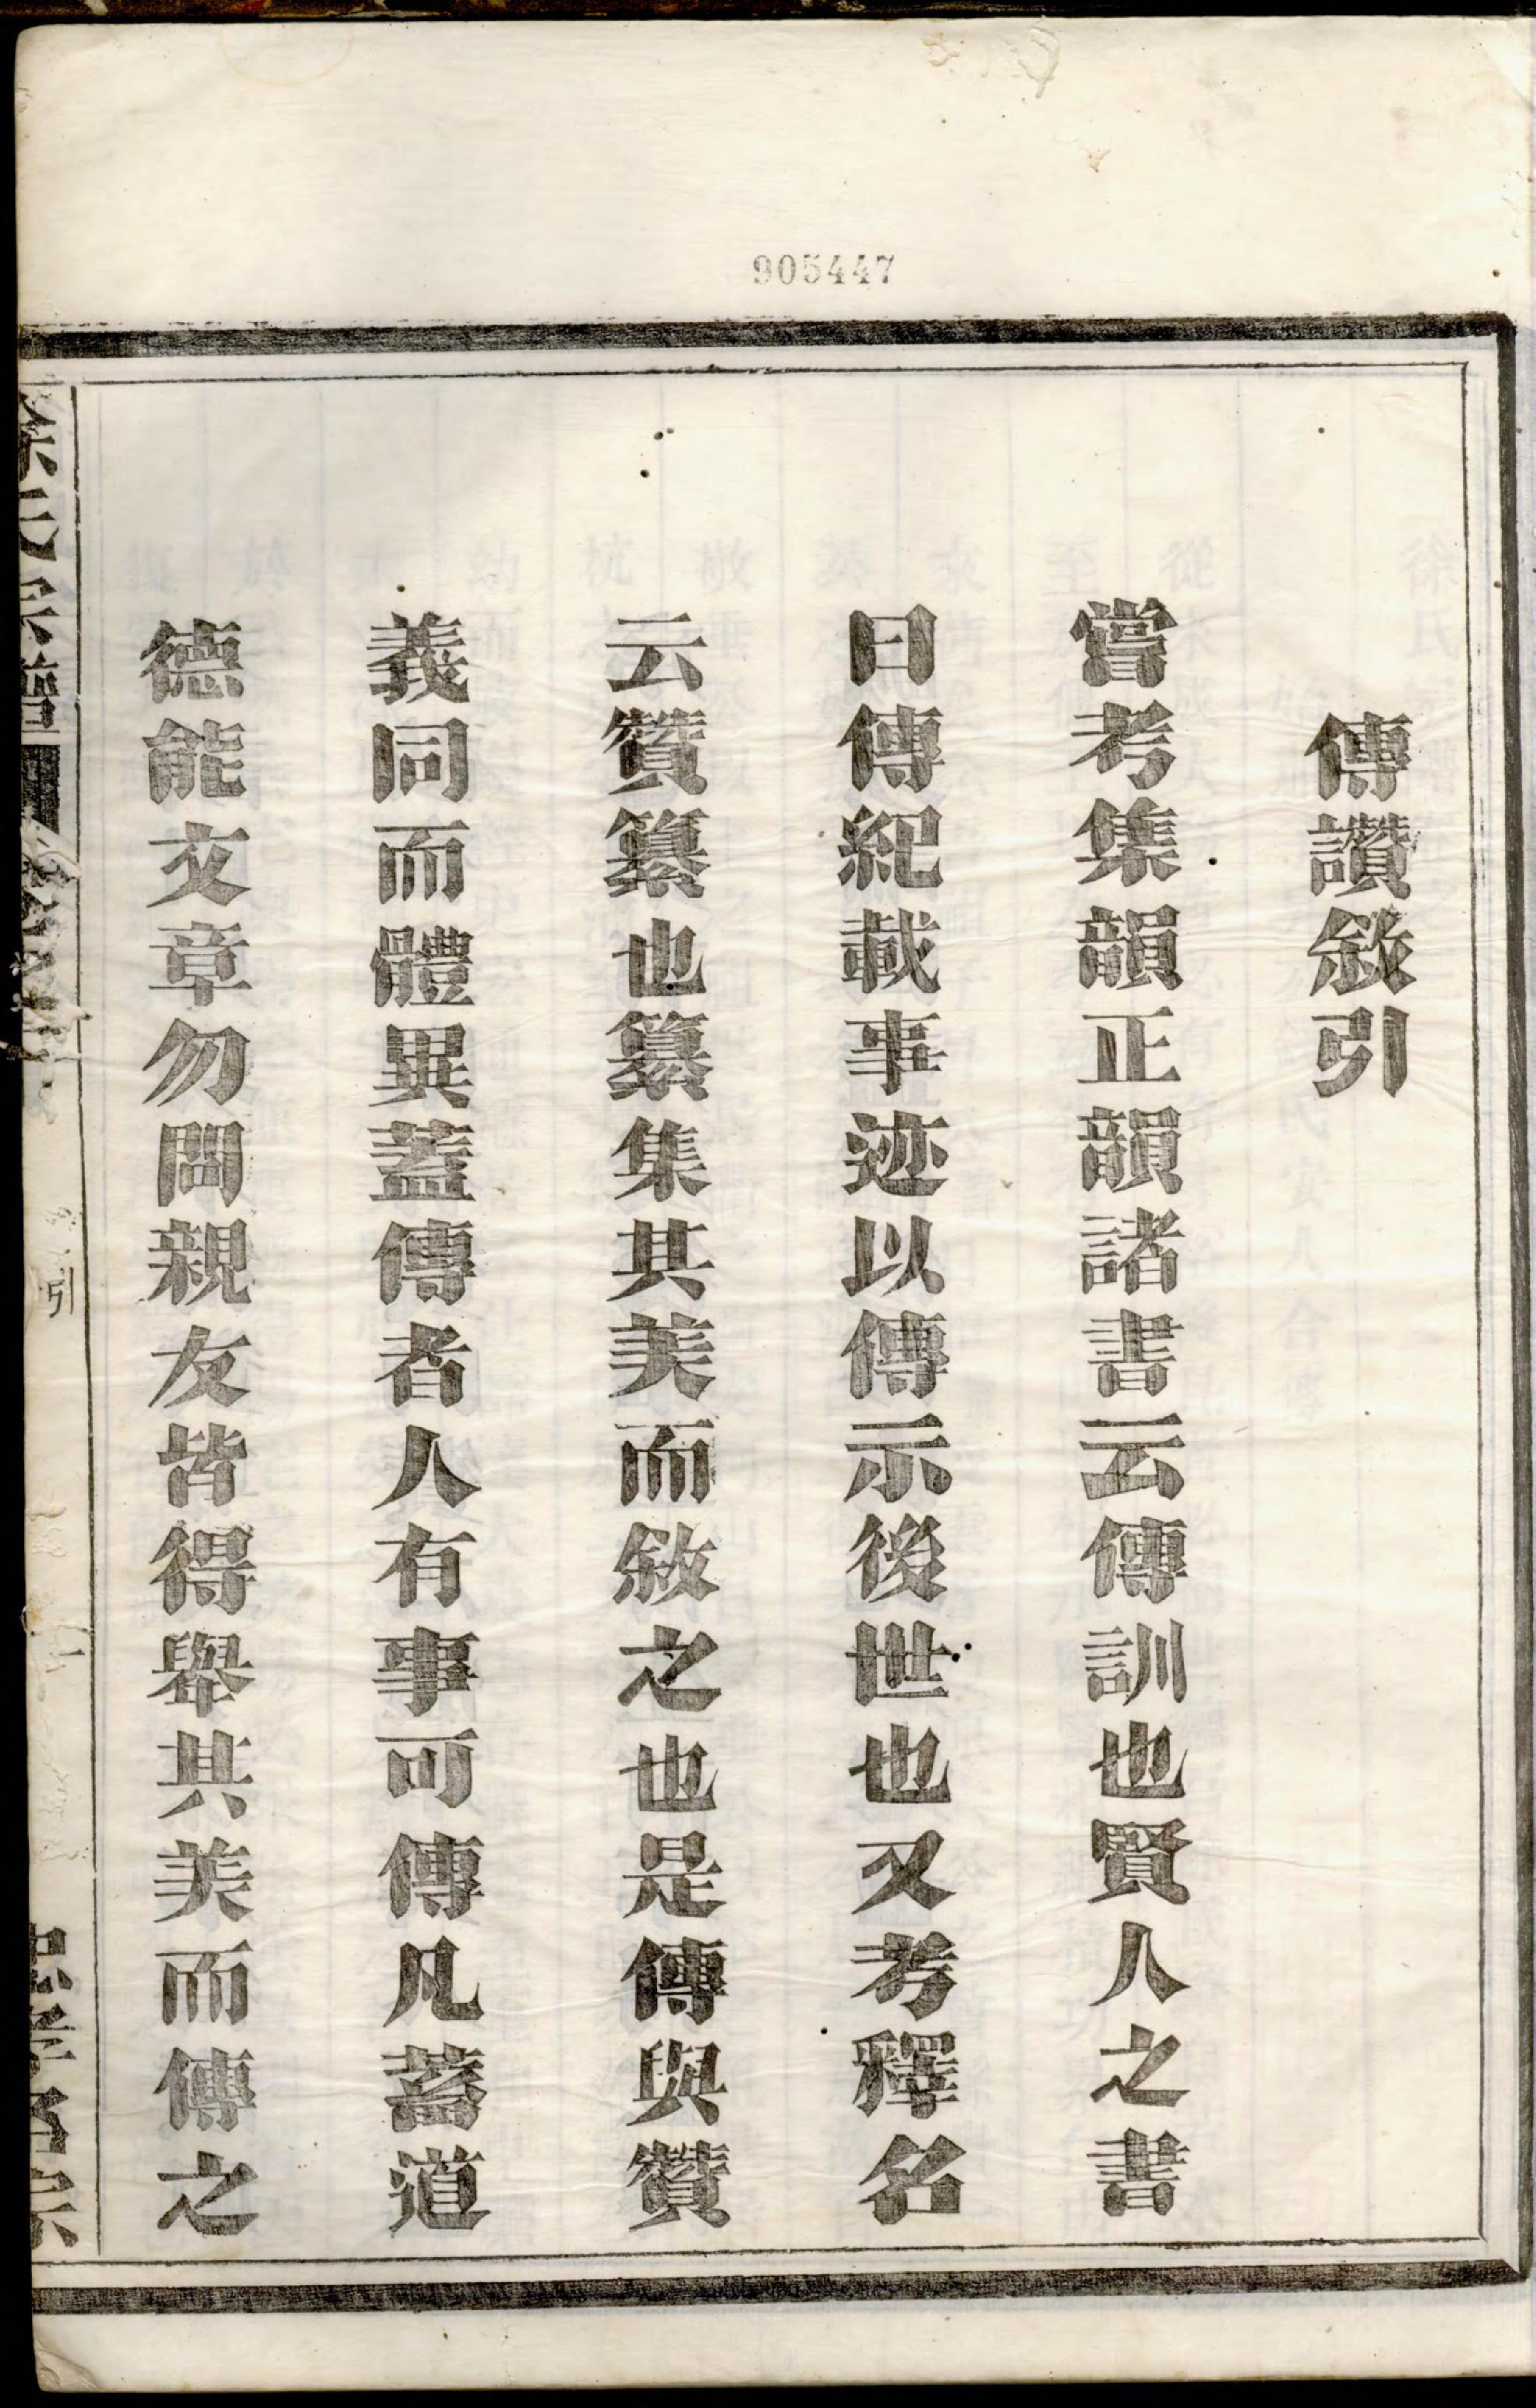 905447
傳讚敘引
嘗考集韻正韻諸書云傳訓也賢人之書
曰傳紀載事迹以傳示後世也又考釋名
云贊纂也纂集其美而敘之也是傳與贊
義同而體異蓋傳者人有事可傳凡蓄道
德能文章勿問親友皆得舉其美而傳之
引